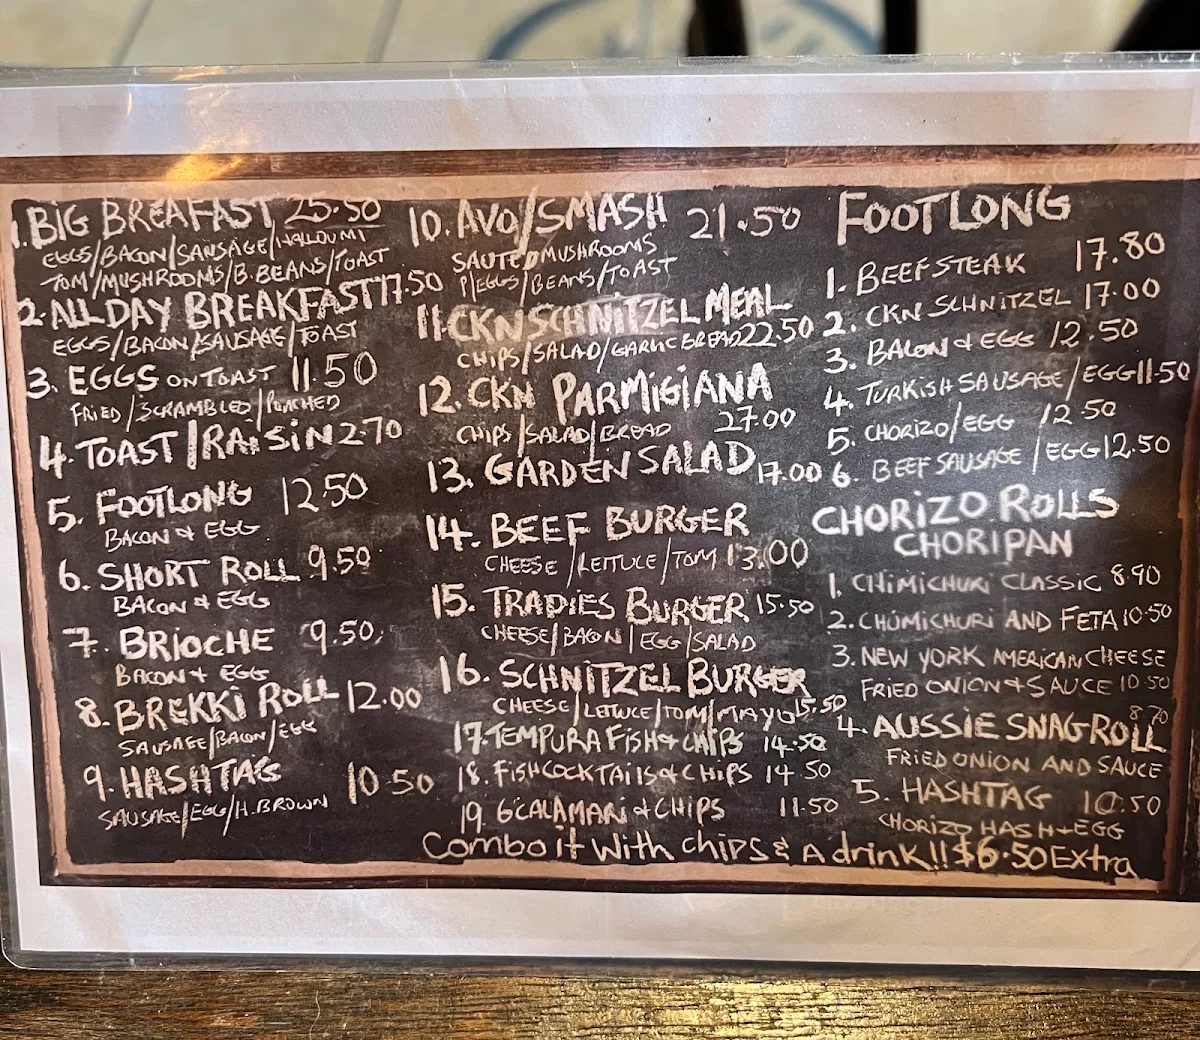 1. BIG BREAFAST 25.50
EGGS/BACON/SAUSAGE/HALLOUMI
TOM/MUSHROOMS/B.BEANS/TOAST
2. ALL DAY BREAKFAST 17.50
EGGS/BACON/SAUSAGE/TOAST
3. EGGS ON TOAST 11.50
FRIED/SCRAMBLED/POACHED
4. TOAST/RAISIN 2.70
5. FOOTLONG 12.50
BACON & EGG
6. SHORT ROLL 9.50
BACON & EGG
7. BRIOCHE 9.50
BACON & EGG
8. BREKKI ROLL 12.00
SAUSAGE/BACON/EGG
9. HASHTAG 10.50
SAUSAGE/EGG/H.BROWN
10. AVO/SMASH 21.50
SAUTED MUSHROOMS
P/EGGS/BEANS/TOAST
11. CKN SCHNITZEL MEAL
CHIPS/SALAD/GARLIC BREAD 22.50
12. CKN PARMIGIANA
CHIPS/SALAD/BREAD 27.00
13. GARDEN SALAD 17.00
14. BEEF BURGER
CHEESE/LETTUCE/TOM 13.00
15. TRADIES BURGER 15.50
CHEESE/BACON/EGG/SALAD
16. SCHNITZEL BURGER
CHEESE/LETUCE/TOM/MAYO 15.50
17. TEMPURA FISH & CHIPS 14.50
18. FISHCOCKTAILS & CHIPS 14.50
19. 6 CALAMARI & CHIPS 11.50
FOOTLONG
1. BEEFSTEAK 17.80
2. CKN SCHNITZEL 17.00
3. BACON & EGG 12.50
4. TURKISH SAUSAGE/EGG 11.50
5. CHORIZO/EGG 12.50
6. BEEF SAUSAGE/EGG 12.50
CHORIZO ROLLS
CHORIPAN
1. CHIMICHURI CLASSIC 8.90
2. CHUMICHURI AND FETA 10.50
3. NEW YORK AMERICAN CHEESE
FRIED ONION & SAUCE 10.50
4. AUSSIE SNAG ROLL 8.70
FRIED ONION AND SAUCE
5. HASHTAG 10.50
CHORIZO HASH + EGG
Combo it with chips & A drink!! $6.50 Extra